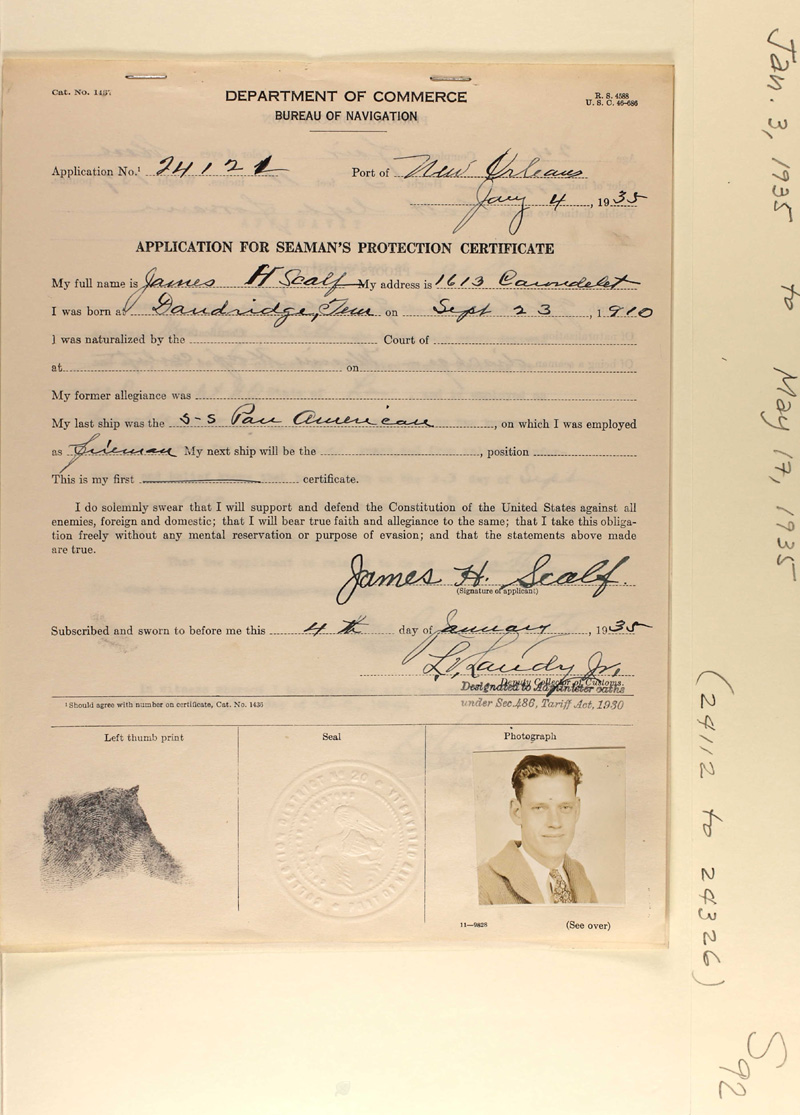 Cat. No. 1437
DEPARTMENT OF COMMERCE
BUREAU OF NAVIGATION
R. S. 4588
U. S. C. 46-686
Application No.¹ 24121
Port of New Orleans
Jany 4, 1935
APPLICATION FOR SEAMAN'S PROTECTION CERTIFICATE
My full name is James H Scalf My address is 1613 Carondelet
I was born at Dandridge, Tenn on Sept 23, 1910
I was naturalized by the Court of
at on
My former allegiance was
My last ship was the S-S Pan American, on which I was employed
as fireman My next ship will be the , position
This is my first certificate.
I do solemnly swear that I will support and defend the Constitution of the United States against all
enemies, foreign and domestic; that I will bear true faith and allegiance to the same; that I take this obliga-
tion freely without any mental reservation or purpose of evasion; and that the statements above made
are true.
James H. Scalf.
(Signature of applicant)
Subscribed and sworn to before me this 4th day of January, 1935
L. V. Landry Jr,
Deputy Collector of Customs.
Designated to Administer oaths
under Sec. 486, Tariff Act, 1930
¹ Should agree with number on certificate, Cat. No. 1436
Left thumb print
Seal
Photograph
11—9828
(See over)
Jan. 3, 1935 to May 17, 1935
(24112 to 24326)
S92